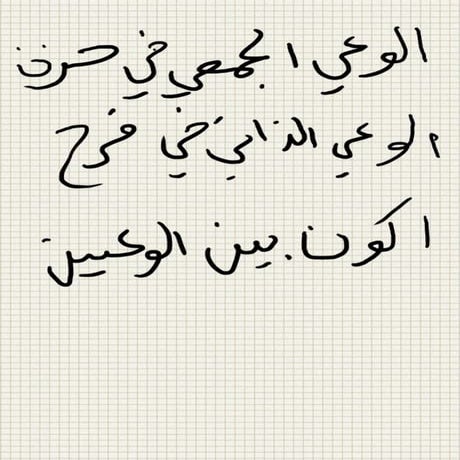 الوعي الجمعي في حزن
الوعي الذاتي في فرح
اكون بين الوعيين